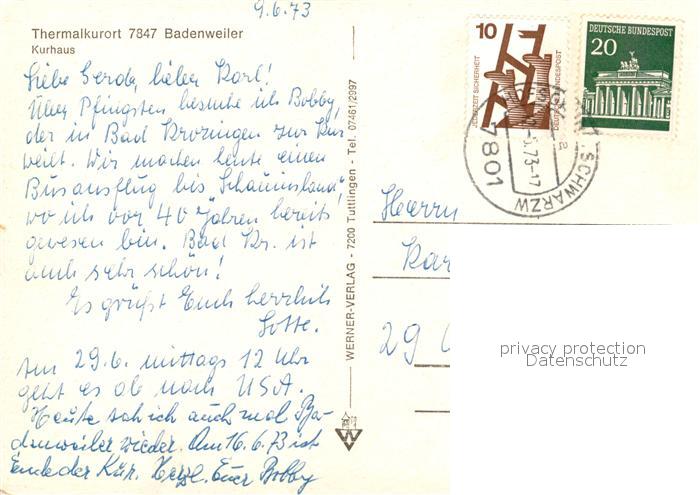 9.6.73
Thermalkurort 7847 Badenweiler
Kurhaus
Liebe Gerda, lieber Karl!
Über Pfingsten besuche ich Bobby,
der in Bad Krozingen zur Kur
weilt. Wir machen heute einen
Busausflug bis Schauinsland
wo ich vor 40 Jahren bereits
gewesen bin. Bad Kr. ist
auch sehr schön!
Es grüßt Euch herzlich
Lotte.
Am 29.6. mittags 12 Uhr
geht es ab nach USA.
Heute sah ich auch mal Ba-
denweiler wieder. Am 16.6.73 ist
Ende der Kur. Herzl. Euer Bobby
WERNER-VERLAG - 7200 Tuttlingen - Tel. 07461/2997
10
JEDERZEIT SICHERHEIT
DEUTSCHE BUNDESPOST
DEUTSCHE BUNDESPOST
20
7801
SCHWARZW
.73-17
Herrn
Kar
29
privacy protection
Datenschutz